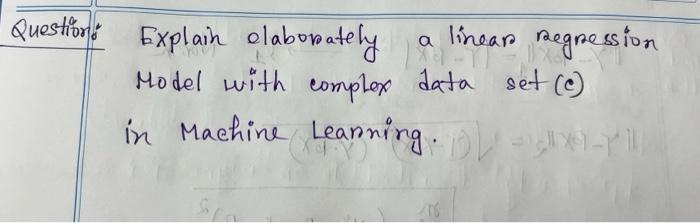 Question: Explain elaborately a linear regression
Model with complex data set (c)
in Machine Learning.